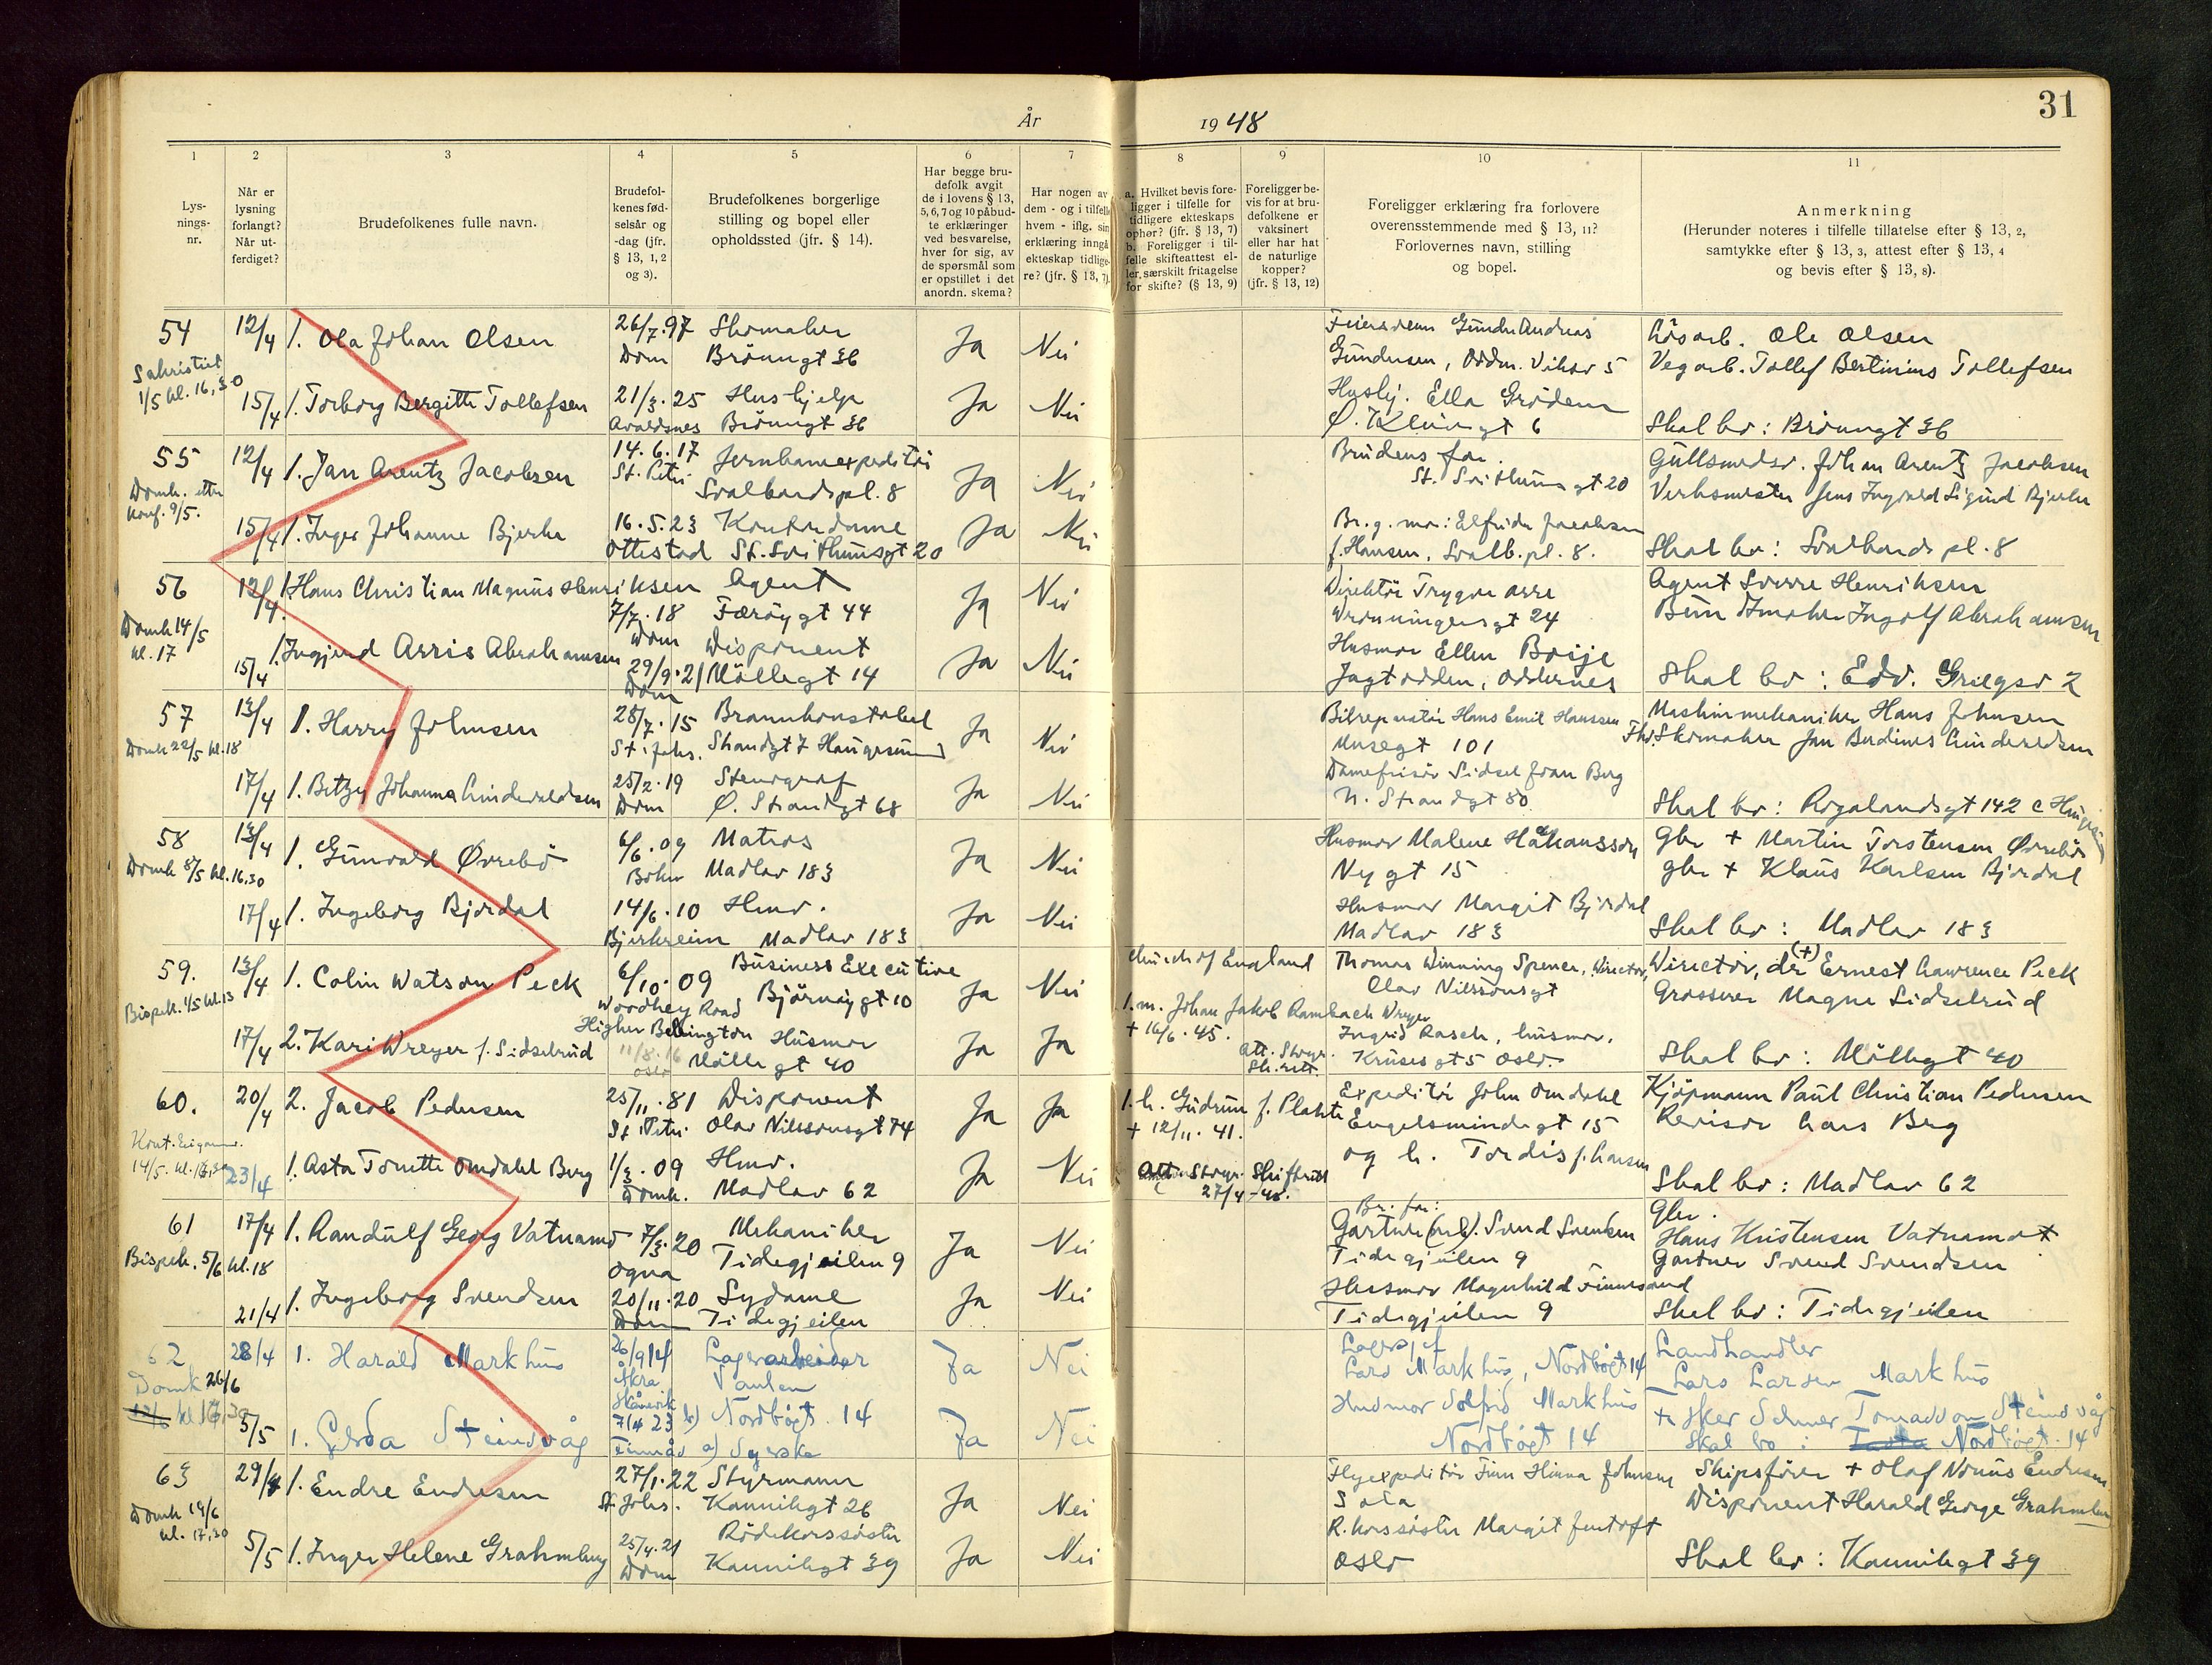 31
År 1948
1 2 3 4 5 6 7 8 9 10 11
Lys-
nings-
nr.
Når er
lysning
forlangt?
Når ut-
ferdiget?
Brudefolkenes fulle navn.
Brudefol-
kenes fød-
selsår og
-dag (jfr.
§ 13, 1, 2
og 3).
Brudefolkenes borgerlige
stilling og bopel eller
opholdssted (jfr. § 14).
Har begge bru-
defolk avgit
de i lovens § 13,
5, 6, 7 og 10 påbud-
te erklæringer
ved besvarelse,
hver for sig, av
de spørsmål som
er opstillet i det
anordn. skema?
Har nogen av
dem - og i tilfelle
hvem - iflg. sin
erklæring inngå
ekteskap tidlige-
re? (jfr. § 13, 7).
a. Hvilket bevis fore-
ligger i tilfelle for
tidligere ekteskaps
ophør? (jfr. § 13, 7)
b. Foreligger i til-
felle skifteattest el-
ler særskilt fritagelse
for skifte? (§ 13, 9)
Foreligger be-
vis for at bru-
defolkene er
vaksinert
eller har hat
de naturlige
kopper?
(jfr. § 13, 12)
Foreligger erklæring fra forlovere
overensstemmende med § 13, 11?
Forlovernes navn, stilling
og bopel.
Anmerkning
(Herunder noteres i tilfelle tillatelse efter § 13, 2,
samtykke efter § 13, 3, attest efter § 13, 4
og bevis efter § 13, 8).
54 12/4 1. Ola Johan Olsen 26/7.97 Skomaker Ja Nei Gunder Andreas Løsarb. Ole Olsen
Sakristiet Dom Brönngt 36 Gundersen, Vegarb. Tollef Bertinius Tollefsen
1/5 kl. 16,30
15/4 1. Torborg Bergitte Tollefsen 21/3.25 Hushjelp Ja Nei Hushj. Ella Grödem
Avaldsnes Brönngt 36 Ø. Kleivegt 6 Skal bo: Brönngt 36
55 12/4 1. Jan Arentz Jacobsen 14.6.17 Jernbaneexpeditör Ja Nei Brudens far. Gullsmedsv. Johan Arentz Jacobsen
Domk. etter St. Petri Svalbardspl. 8 St. Svithunsgt 20 Verksmester Jens Ingvald Sigurd Bjerke
Konf. 9/5.
15/4 1. Inger Johanne Bjerke 16.5.23 Kontordame Ja Nei Br.g. mor: Elfrida Jacobsen
Ottestad St. Svithunsgt 20 f. Hansen, Svalb.pl. 8. Skal bo: Svalbards pl. 8
56 13/4. 1. Hans Christian Magnus Henriksen Agent Ja Nei Direktör Trygve Agent Sverre Henriksen
Domk 14/5 7/7.18 Færöygt 44 24 Ingolf Abrahamsen
kl. 17 Dom
15/4 1. Ingjerd Arris Abrahamsen Disponent Ja Nei Husmor Ellen
29/9.21 Möllegt 14 Jagtodden, Oddernes Skal bo: Edv. Griegsv 2
Dom
57 13/4 1. Harry Johnsen 28/7.15 Brannkonstabel Ja Nei Bilreparatör Hans Emil Hanssen Maskinmekaniker Hans Johnsen
Domk 22/5 kl. 18 St. Johs. Strandgt 7 Haugesund Musegt 101 Skomaker Jan
17/4 1. Betzy Johanna 25/2.19 Stenograf Ja Nei Damefrisör Sidsel Joan Berg
Dom Ø. Strandgt 68 N. Strandgt 80 Skal bo: Rogalandsgt 142 c Haugesund
58 13/4 1. Gunvald Øvrebö 6/6.09 Matros Ja Nei Husmor Malene Håkansson gbr + Martin Torstensen Øvrebö
Domk 8/5 kl. 16.30 Madlav 183 Nygt 15 gbr + Klaus Karlsen Bjordal
17/4 1. Ingeborg Bjordal 14/6.10 Hmv. Ja Nei Husmor Margit Bjordal
Bjerkreim Madlav 183 Madlav 183 Skal bo: Madlav 183
59. 13/4 1. Colin Watson Peck 6/10.09 Business Executive Ja Nei Church of England Thomas Winning Spence, Director, Director, der (+) Ernest Lawrence Peck
Bispek. 1/5 kl. 13 Woodhey Road Björnöygt 10 Olav Nilssonsgt Grosserer Magne Sidselrud
Higher Bebington
17/4 2. Kari Wreyer f. Sidselrud 11/8.16 Husmor Ja Ja 1. m. Johan Jakob Rambach Wreyer + 16/6.45. Ingrid Rasch, husmor.
Oslo Möllegt 40 Krusesgt 5 Oslo. Skal bo: Möllegt 40
60. 20/4 2. Jacob Pedersen 25/11.81 Disponent Ja Ja 1. h. Gudrun f. Expeditör John Omdahl Kjöpmann Paul Christian Pedersen
St. Petri Olav Nilssonsgt 74 + 12/11.41. Engelsmindegt 15 Revisor Lars Berg
14/5. 23/4 1. Asta Tonette Omdahl Berg 1/3.09 Hmv. Ja Nei Att. Skifterett og h. Tordis f. Larsen
Domk. Madlav 62 27/4-48. Skal bo: Madlav 62
61 17/4 1. Randulf Georg Vatnamo 7/3.20 Mekaniker Ja Nei Br. far: gbr.
Bispek. 5/6 kl. 18 Ogna Tidegjeilen 9 Gartner Svend Svendsen Hans Kristensen Vatnamot
Tidegjeilen 9 Gartner Svend Svendsen
21/4 1. Ingeborg Svendsen 20/11.20 Sydame Ja Nei Husmor Magnhild Finnesand
Dom Tidegjeilen Tidegjeilen 9 Skal bo: Tidegjeilen
62 28/4 1. Harald Markhus 26/9 14 Lagerarbeider Ja Nei Lagersjef Landhandler
Domk 26/6 Åkra Paulen Lars Markhus, Nordbögt 14 Lars Larsen Markhus
kl 16,30 Skånevik Husmor Solfrid Markhus
5/5 1. Gerda Steinsvåg 7/4 23 b) Nordbögt. 14 Ja Nei Nordbögt 14 Fisker Selmer Tomasson Steinsvåg
a) Syerske Skal bo: Nordbögt. 14
63 29/4 1. Endre Endresen 27/1.22 Styrmann Ja Nei Flyexpeditör Finn Hinna Johnsen Skipsförer + Olaf Endresen
Domk 19/6 St. Johs. Kannikgt 26 Sola Disponent Harald George Grahmberg
kl. 17,30
5/5 1. Inger Helene Grahmberg 25/4.21 Rödekorssöster Ja Nei R. korssöster Margit Jentoft
Dom Kannikgt 39 Oslo Skal bo: Kannikgt 39